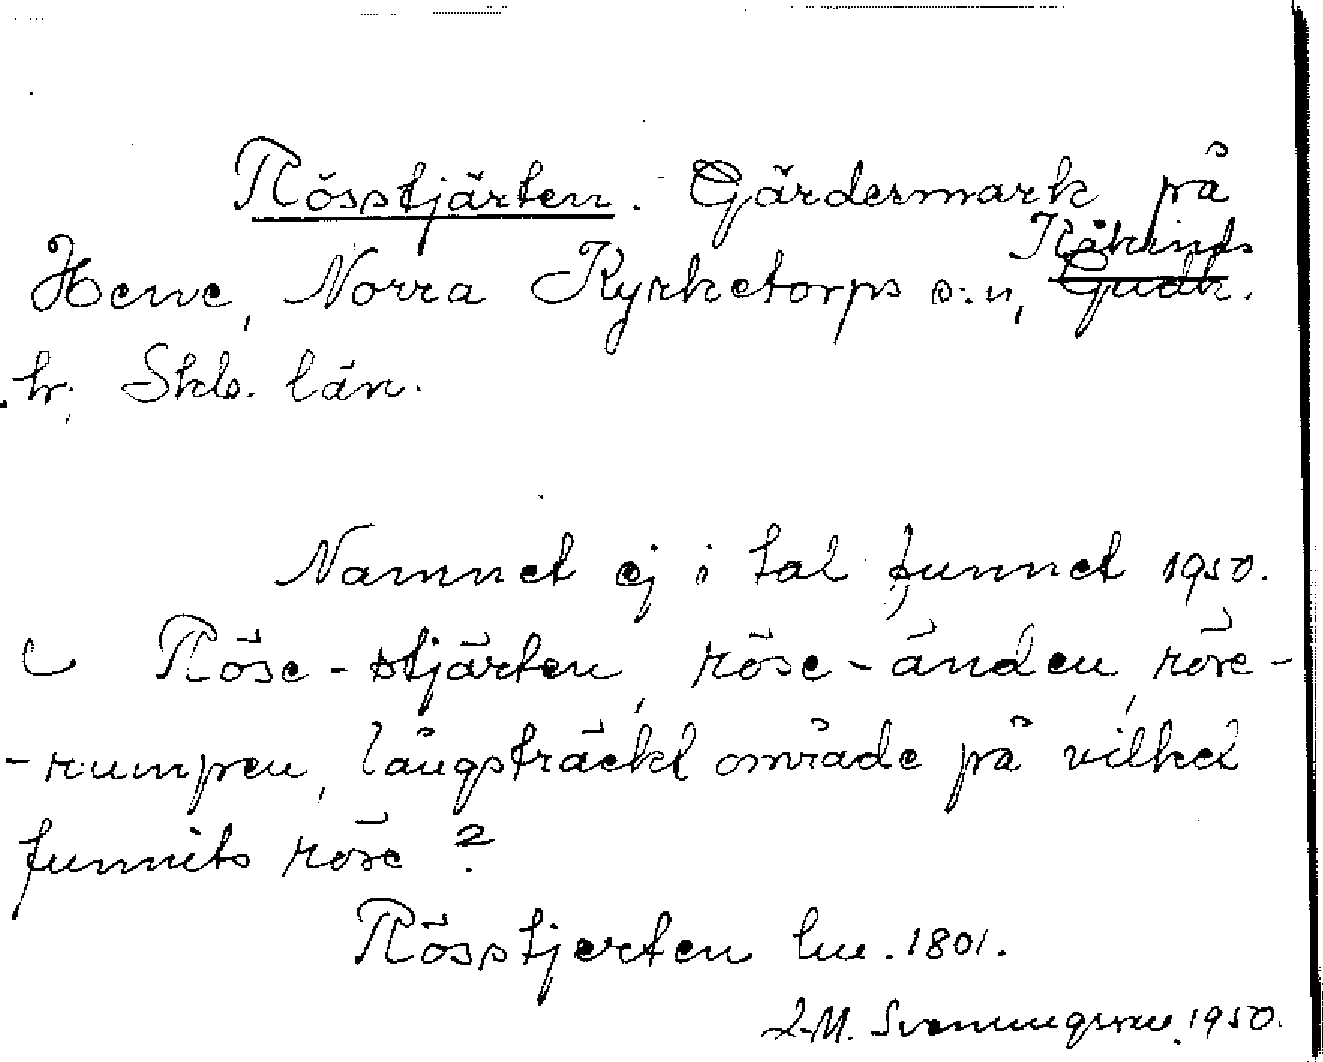 Rösstjärten. Gärdesmark på
Kåkinds
Hene, Norra Kyrketorps s:n, Gudh.
hr. Skb. län.
Namnet ej i tal funnet 1950.
Röse-stjärten, röse-änden, röse-
-rumpen, långsträckt område på vilket
funnits röse?
Rösstjerten lm. 1801.
L.M. Svenungsson. 1950.